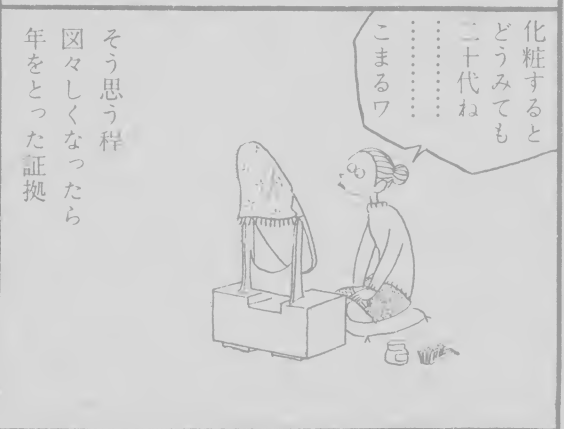 化粧すると
どうみても
二十代ね
………
……
こまるワ
そう思う程
図々しくなったら
年をとった証拠